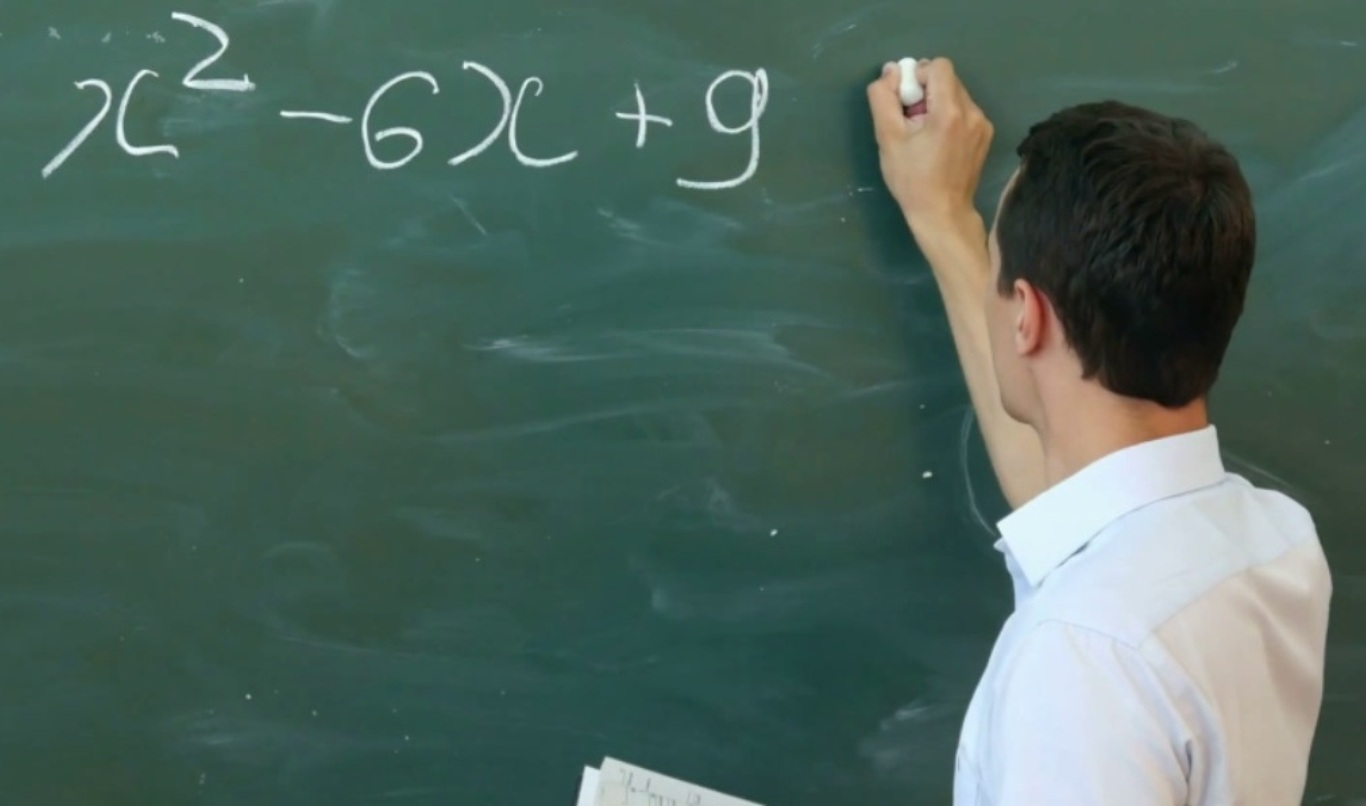 x² - 6x + 9